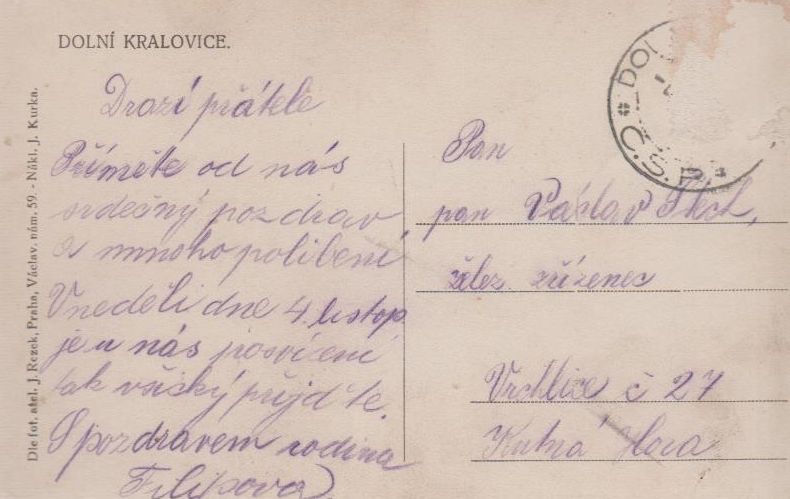 DOLNÍ KRALOVICE.
Drazí přátele
Přiměte od nás
srdečný pozdrav
a mnoho políbení
V neděli dne 4. listop.
je u nás posvícení
tak všicky přijďte.
S pozdravem rodina
Filipova
Dle fot. atel. J. Rezek, Praha, Václav. nám. 59. - Nákl. J. Kurka.
DOL
Č.S.
Pan
pan Václav
želez. zřízenec
Vrchlice č 27
Kutná Hora